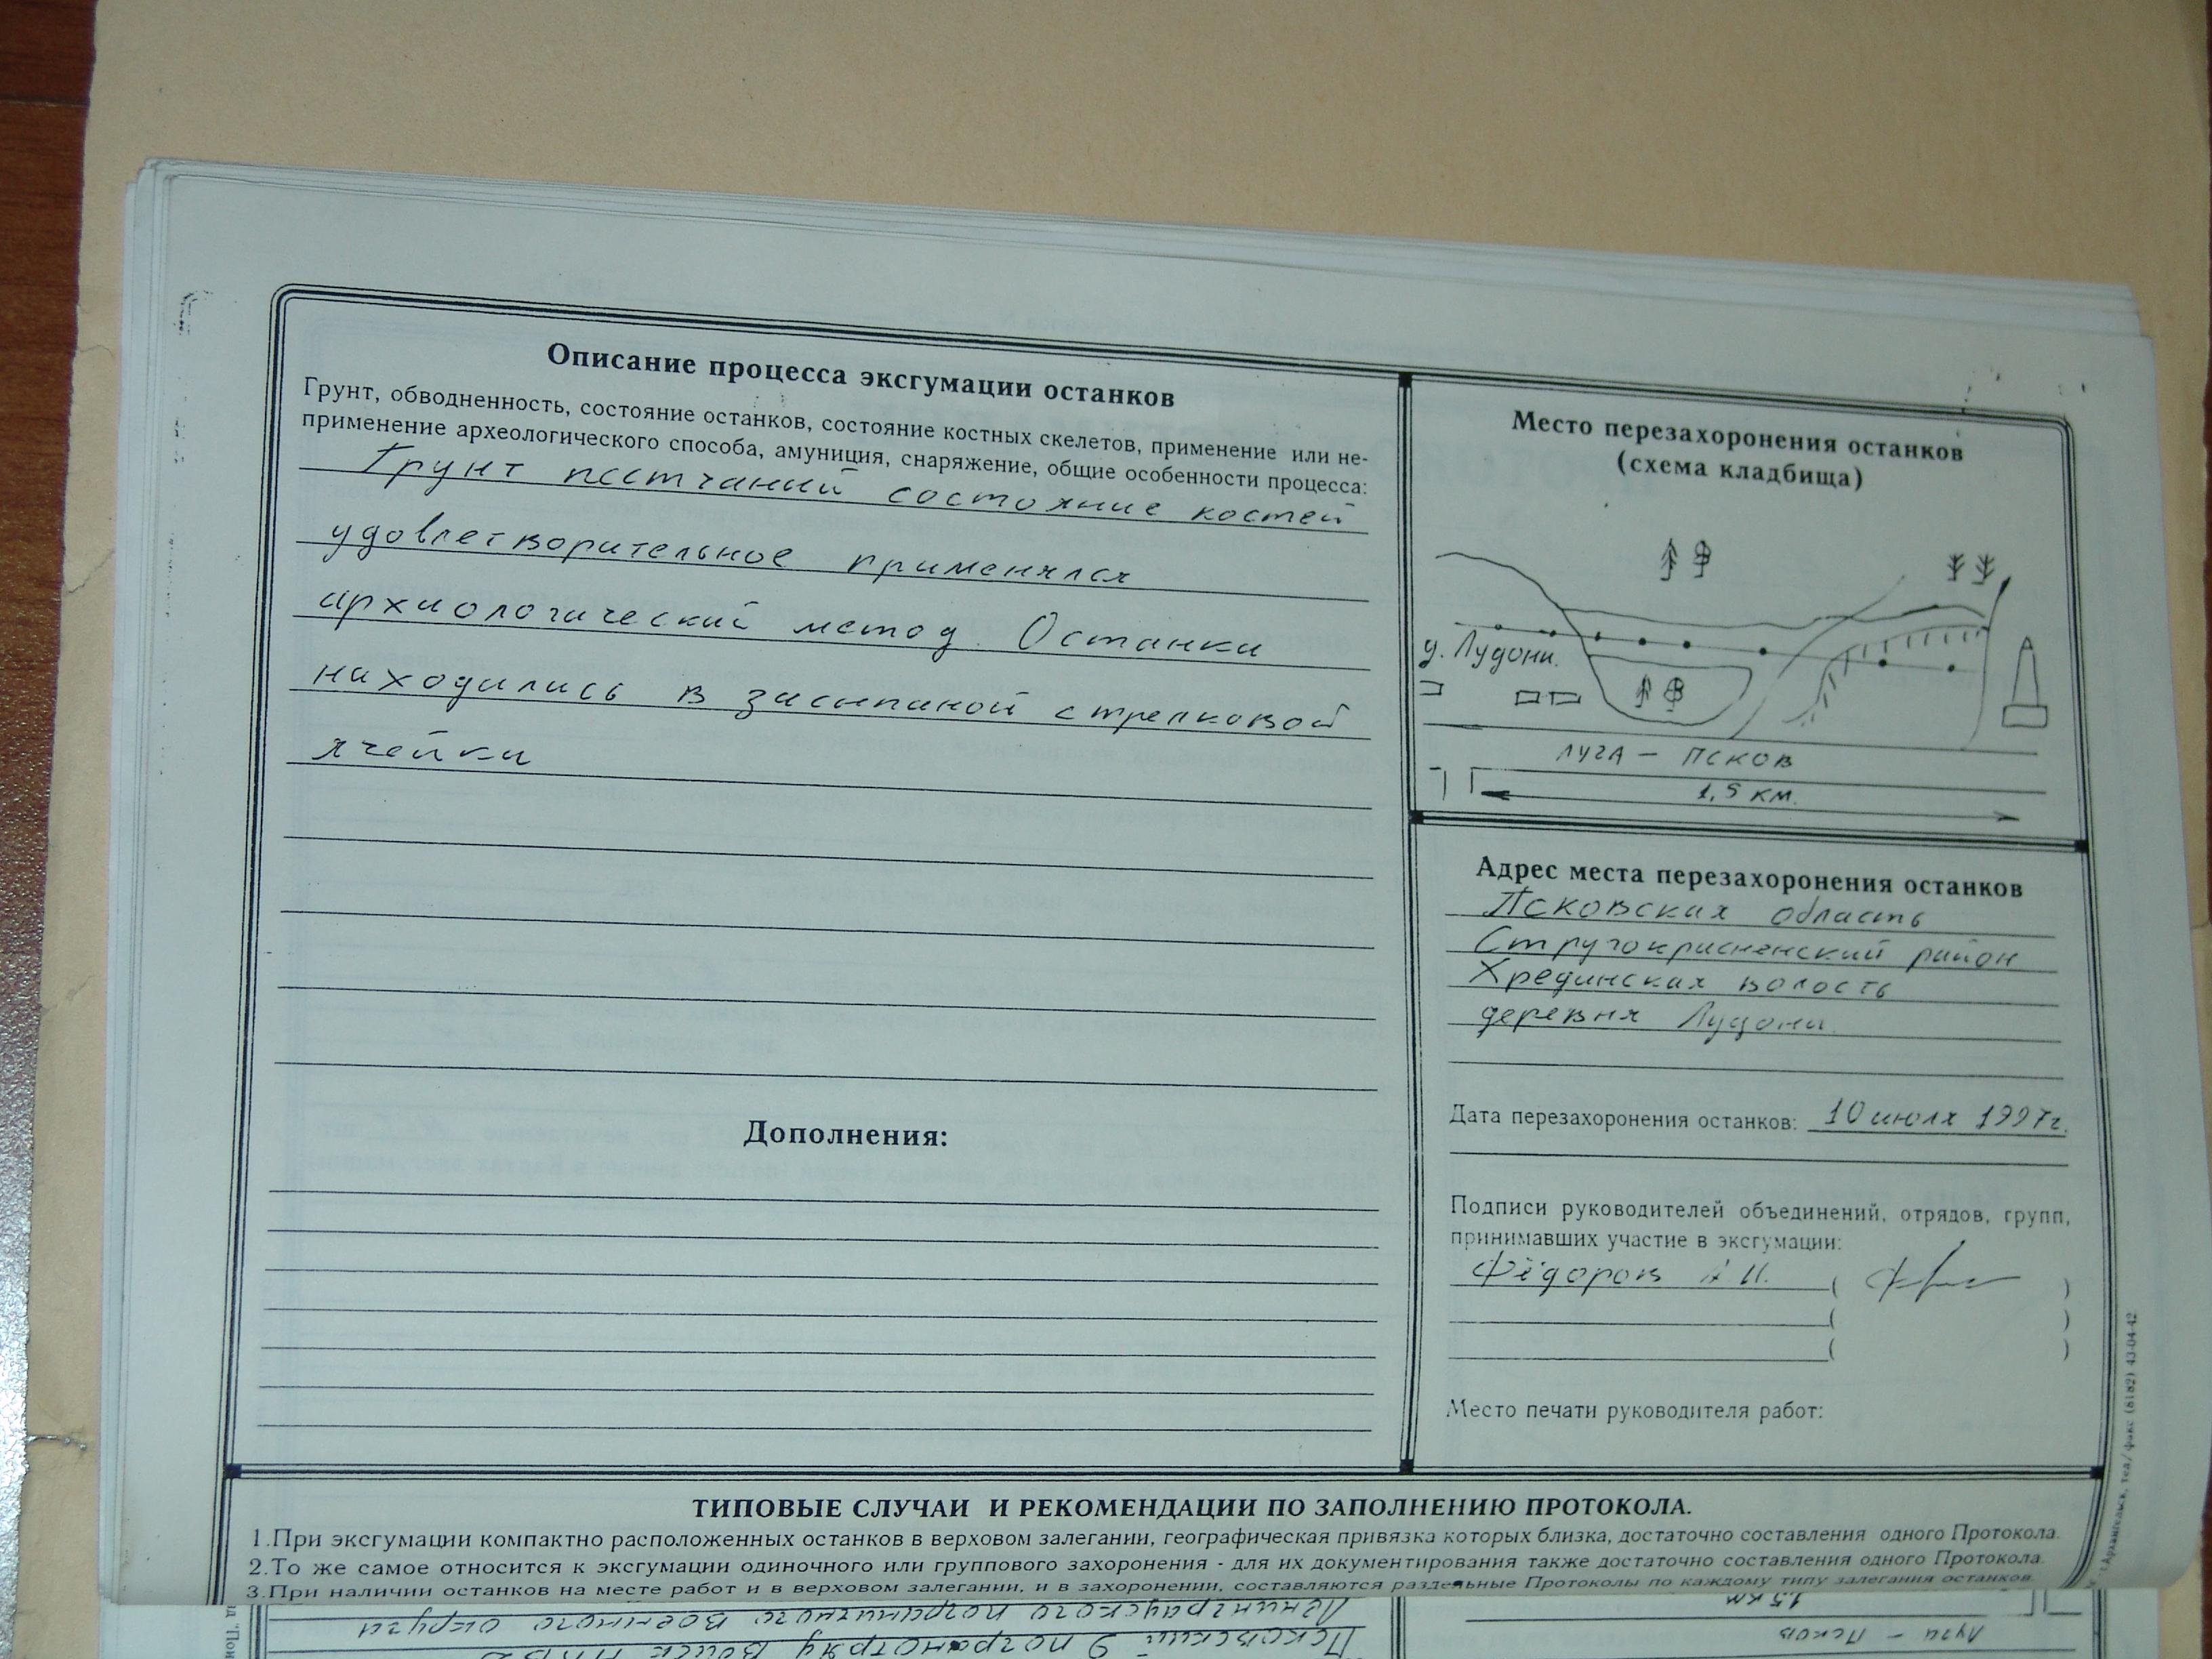 Описание процесса эксгумации останков
Грунт, обводненность, состояние останков, состояние костных скелетов, применение или не-
применение археологического способа, амуниция, снаряжение, общие особенности процесса:
Грунт пестчаный состояние костей
удовлетворительное применялся
архиологический метод. Останки
находились в засыпаной стрелковой
ячейки
Дополнения:
Место перезахоронения останков
(схема кладбища)
д. Лудони.
ЛУГА – ПСКОВ
1,5 км.
Адрес места перезахоронения останков
Псковская область
Стругокрасненский район
Хрединская волость
деревня Лудони.
Дата перезахоронения останков: 10 июля 1997г.
Подписи руководителей объединений, отрядов, групп,
принимавших участие в эксгумации:
Фёдоров А И. ( )
( )
( )
Место печати руководителя работ:
ТИПОВЫЕ СЛУЧАИ И РЕКОМЕНДАЦИИ ПО ЗАПОЛНЕНИЮ ПРОТОКОЛА.
1.При эксгумации компактно расположенных останков в верховом залегании, географическая привязка которых близка, достаточно составления одного Протокола.
2.То же самое относится к эксгумации одиночного или группового захоронения - для их документирования также достаточно составления одного Протокола.
3.При наличии останков на месте работ и в верховом залегании, и в захоронении, составляются раздельные Протоколы по каждому типу залегания останков.
г.Архангельск, тел/факс (8182) 43-04-42
Псковский 9 погранотряд Войск НКВД
Ленинградского пограничного Военного округа
Луга – Псков
1,5 км